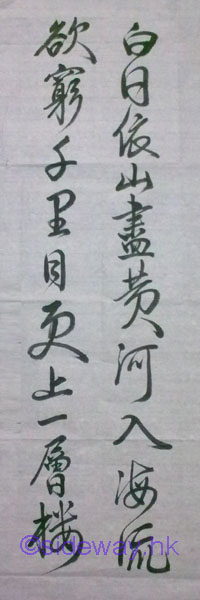 白日依山盡黄河入海流
欲窮千里目更上一層楼
©sideway.hk